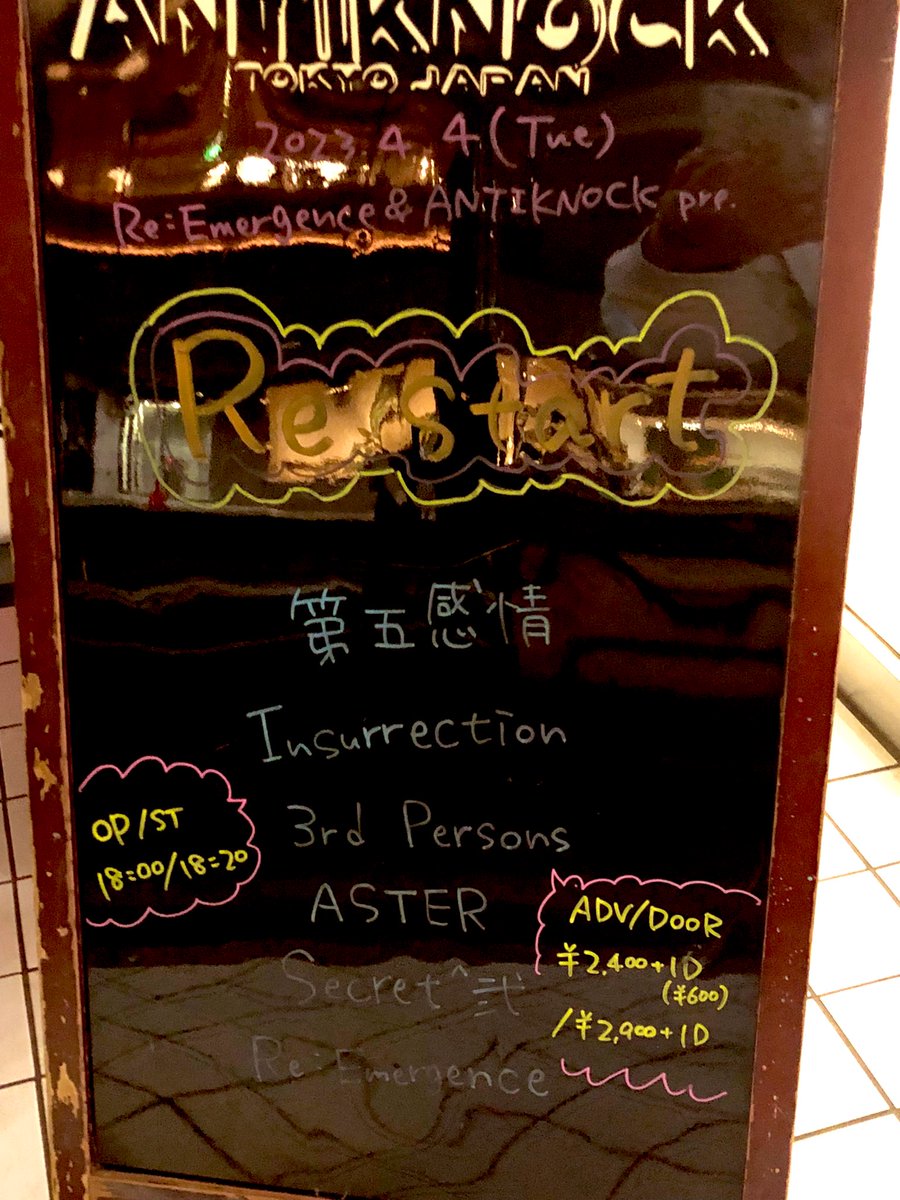 ANTIKNOCK
TOKYO JAPAN
2023.4.4(Tue)
Re:Emergence & ANTIKNOCK pre.
Re:start
第五感情
Insurrection
3rd Persons
ASTER
Secret^弐
Re:Emergence
OP/ST
18:00/18:20
ADV/DOOR
¥2,400+1D
(¥600)
/¥2,900+1D